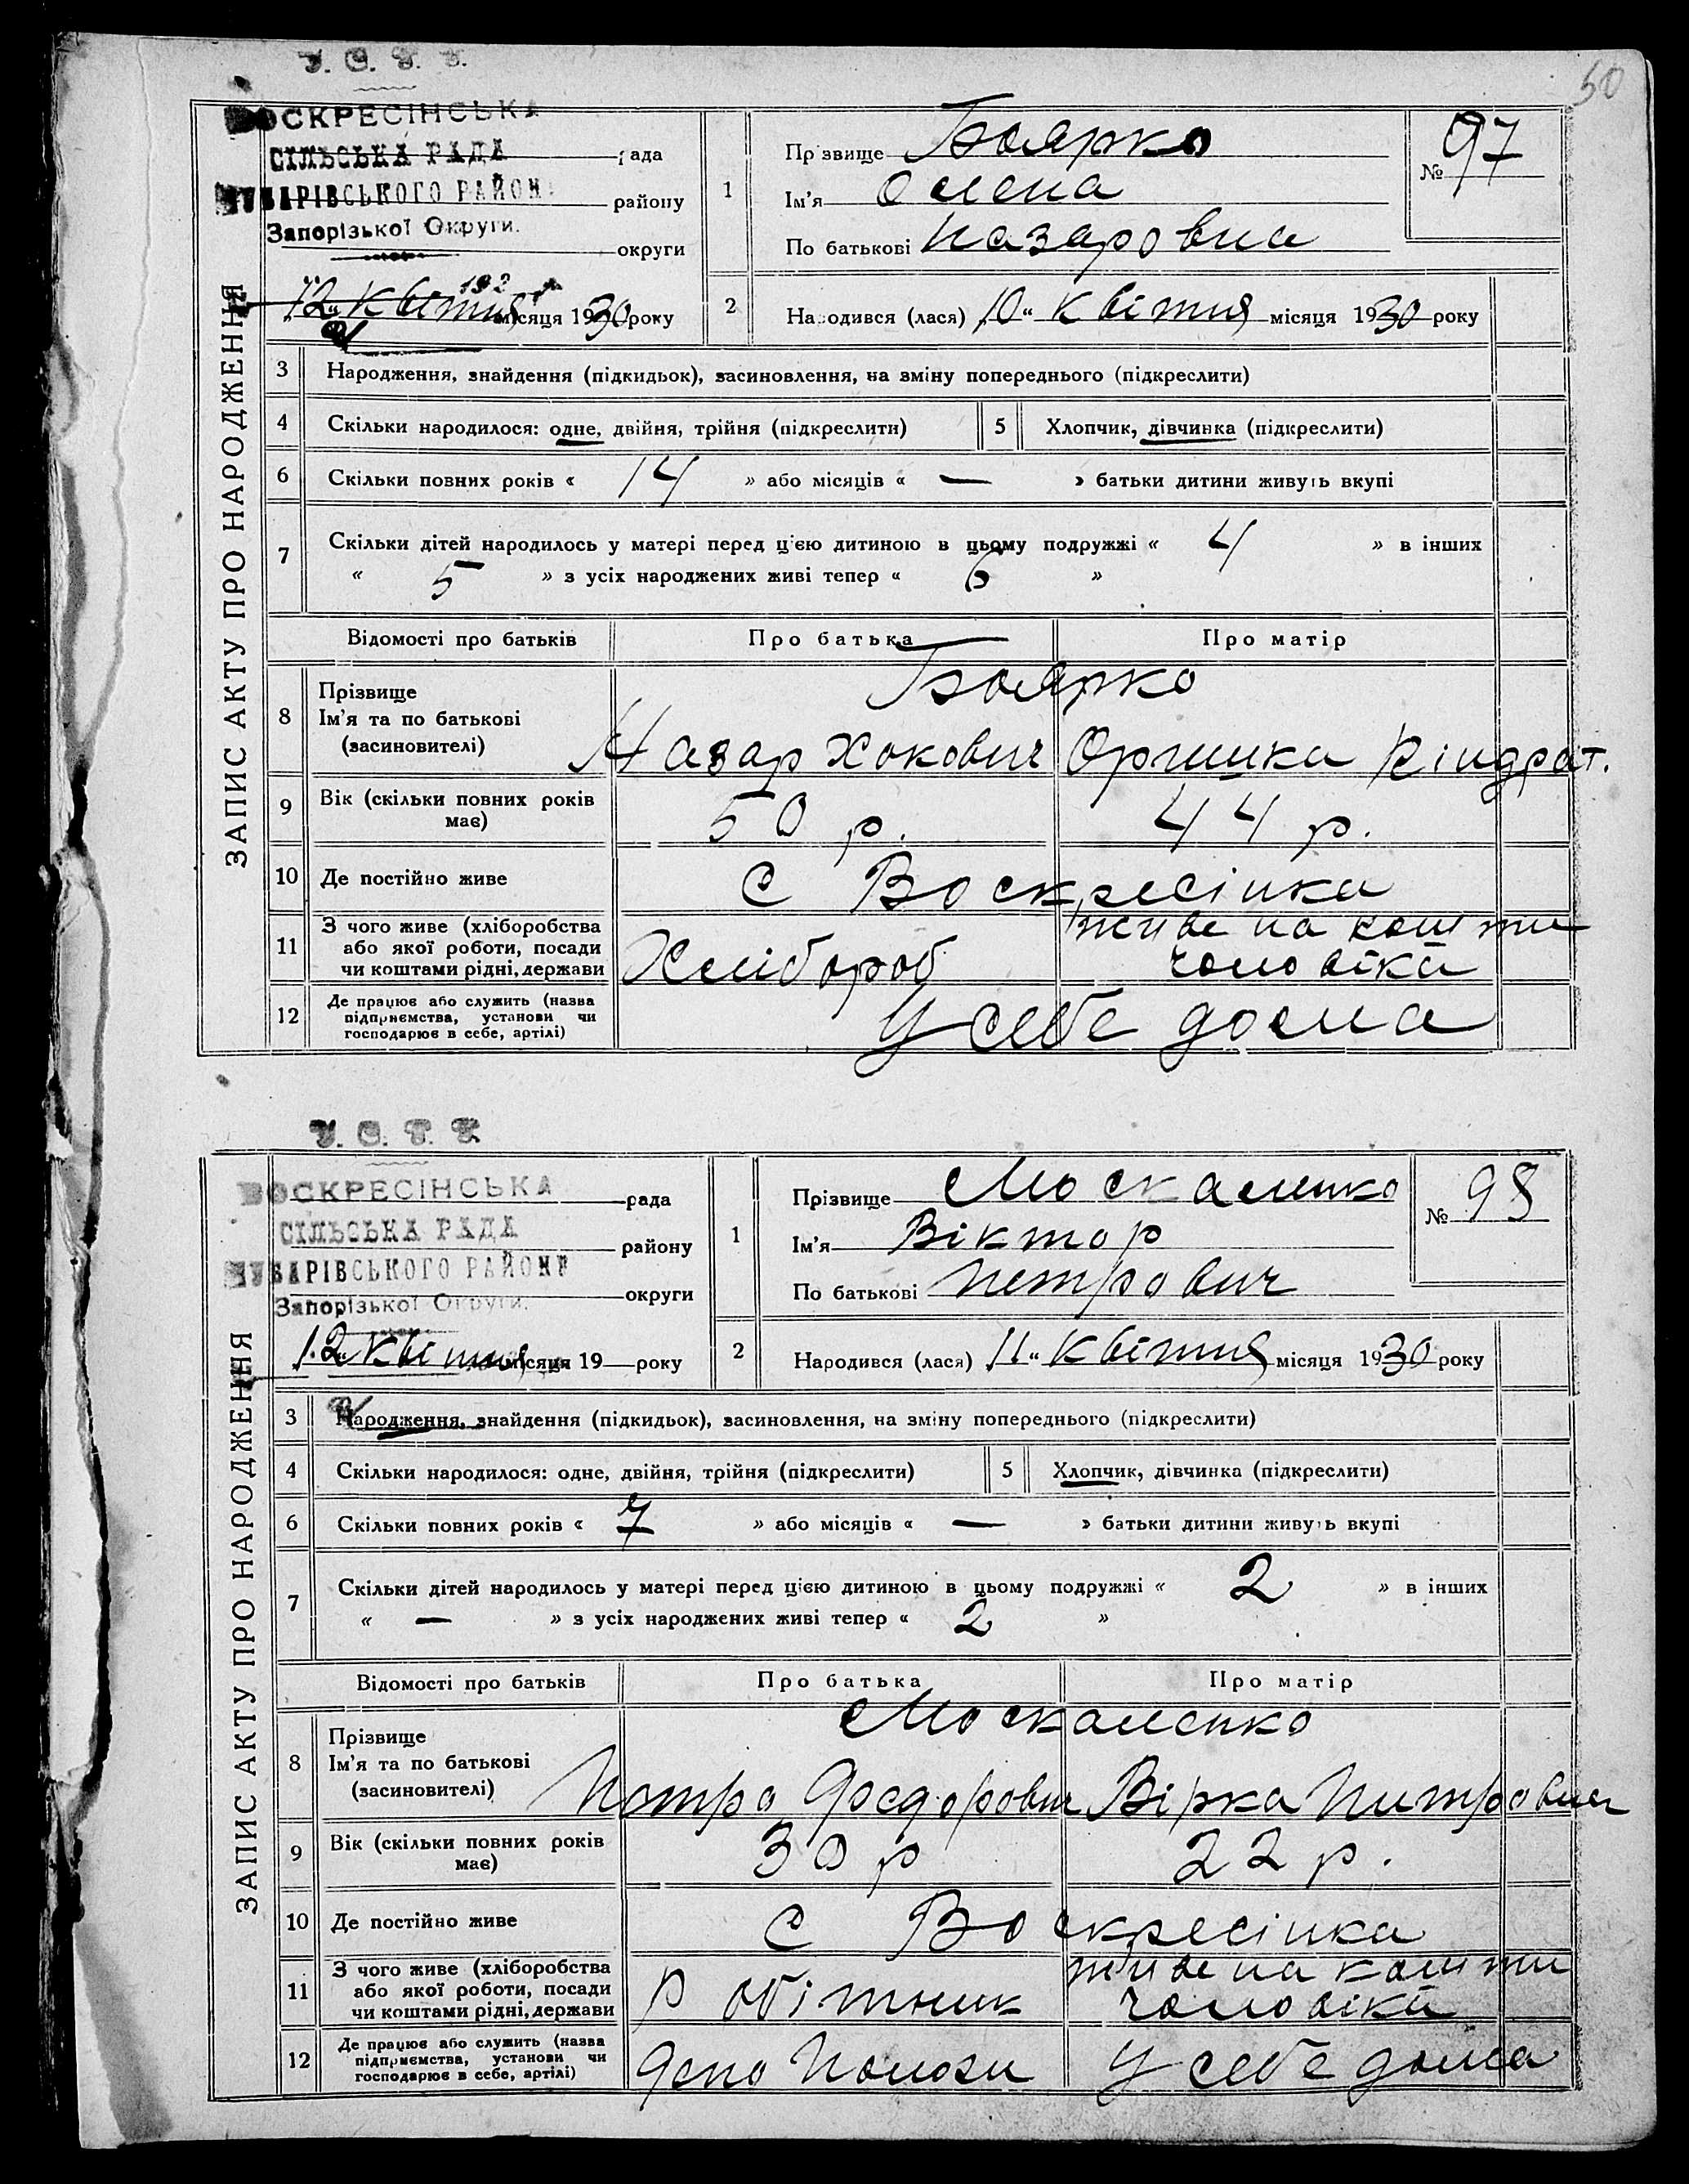 50
У. С. Р. Р.
ВОСКРЕСІНСЬКА
СІЛЬСЬКА РАДА рада
ЧУБАРІВСЬКОГО РАЙОНУ району
Запорізької Округи. округи
„12“ квітня місяця 1930 року
ЗАПИС АКТУ ПРО НАРОДЖЕННЯ
1 Прізвище Боярко
Ім'я Олена
По батькові Назаровна
№ 97
2 Народився (лася) „10“ квітня місяця 1930 року
3 Народження, знайдення (підкидьок), засиновлення, на зміну попереднього (підкреслити)
4 Скільки народилося: одне, двійня, трійня (підкреслити) 5 Хлопчик, дівчинка (підкреслити)
6 Скільки повних років « 14 » або місяців « — » батьки дитини живуть вкупі
7 Скільки дітей народилось у матері перед цією дитиною в цьому подружжі « 4 » в інших
« 5 » з усіх народжених живі тепер « 6 »
Відомості про батьків Про батька Про матір
8 Прізвище Боярко
Ім'я та по батькові
(засиновителі) Назар Хокович Оришка Кіндрат.
9 Вік (скільки повних років має) 50 р. 44 р.
10 Де постійно живе с Воскресінка
11 З чого живе (хліборобства
або якої роботи, посади
чи коштами рідні, держави Хлібороб живе на кошти
чоловіка
12 Де працює або служить (назва
підприємства, установи чи
господарює в себе, артілі) У себе дома
У. С. Р. Р.
ВОСКРЕСІНСЬКА рада
СІЛЬСЬКА РАДА району
ЧУБАРІВСЬКОГО РАЙОНУ
Запорізької Округи. округи
„12“ квітня місяця 19 — року
ЗАПИС АКТУ ПРО НАРОДЖЕННЯ
1 Прізвище Москаленко
Ім'я Віктор
По батькові Петрович
№ 98
2 Народився (лася) „11“ квітня місяця 1930 року
3 Народження, знайдення (підкидьок), засиновлення, на зміну попереднього (підкреслити)
4 Скільки народилося: одне, двійня, трійня (підкреслити) 5 Хлопчик, дівчинка (підкреслити)
6 Скільки повних років « 7 » або місяців « — » батьки дитини живуть вкупі
7 Скільки дітей народилось у матері перед цією дитиною в цьому подружжі « 2 » в інших
« — » з усіх народжених живі тепер « 2 »
Відомості про батьків Про батька Про матір
8 Прізвище Москаленко
Ім'я та по батькові
(засиновителі) Петро Федорович Вірка
9 Вік (скільки повних років має) 30 р 22 р.
10 Де постійно живе с Воскресінка
11 З чого живе (хліборобства
або якої роботи, посади
чи коштами рідні, держави Робітник живе на кошти
чоловіка
12 Де працює або служить (назва
підприємства, установи чи
господарює в себе, артілі) Депо Пологи У себе дома